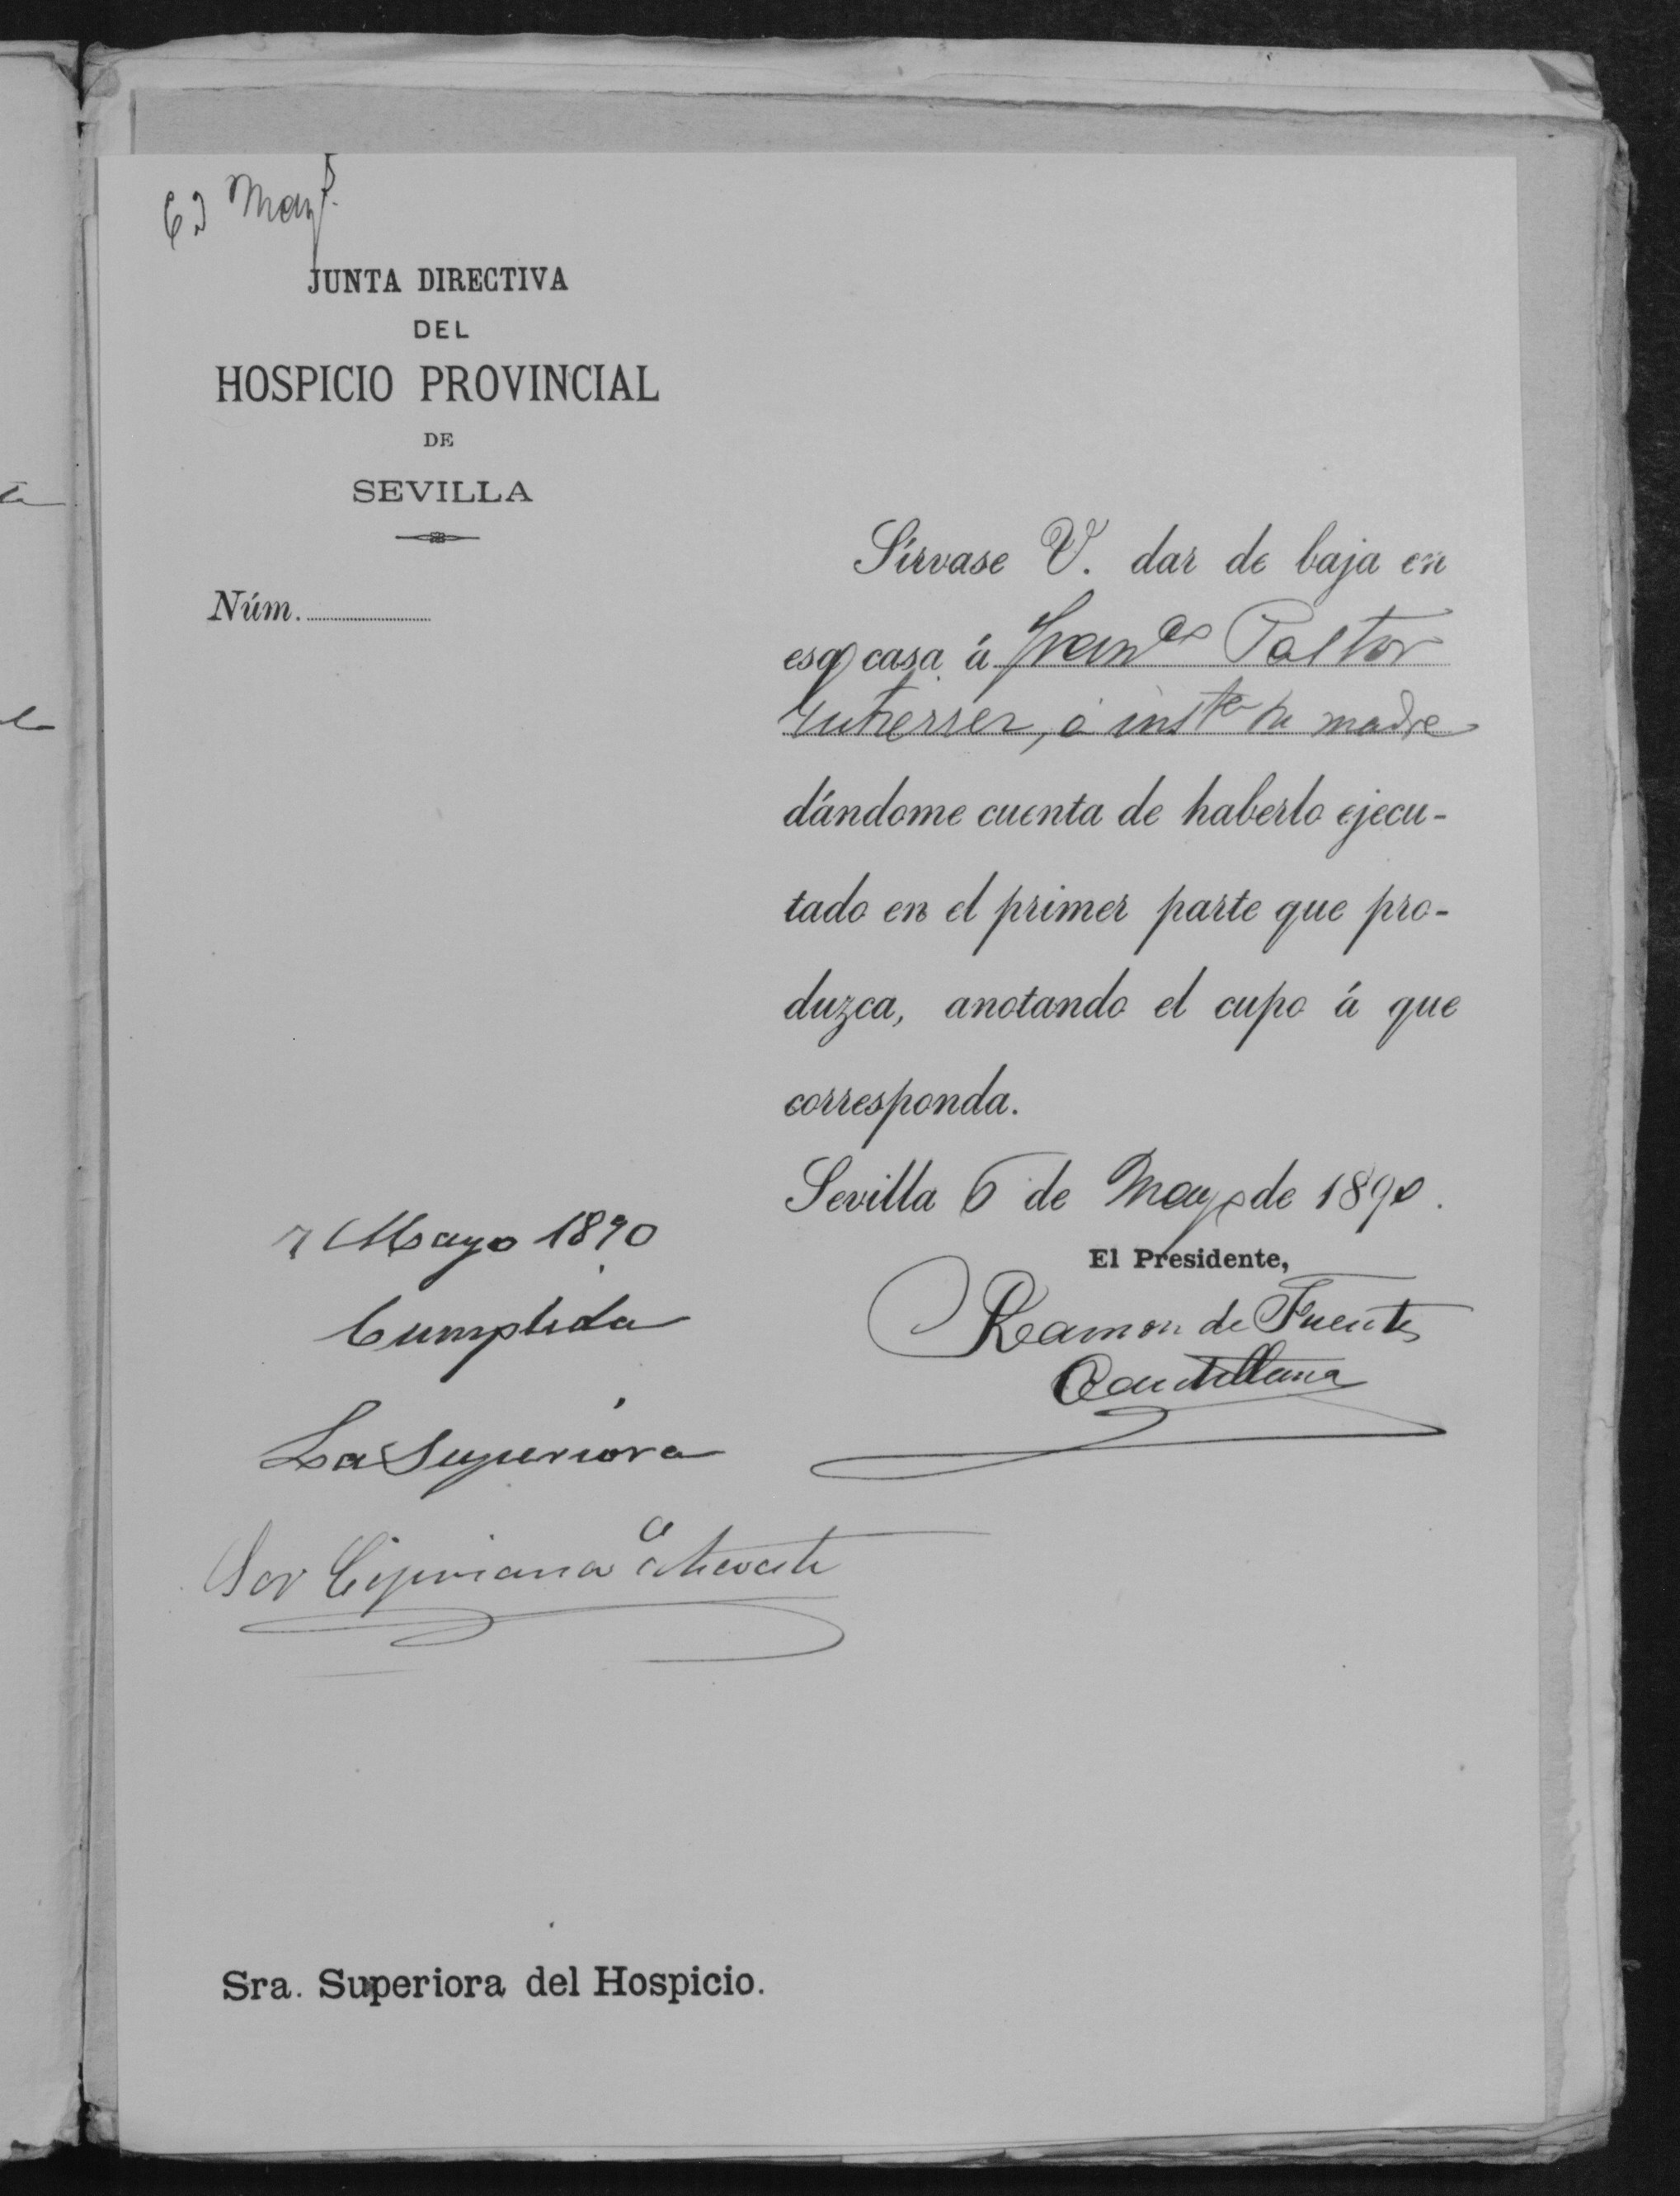 6 Mayo
JUNTA DIRECTIVA
DEL
HOSPICIO PROVINCIAL
DE
SEVILLA
Núm.
Sírvase V. dar de baja en
esa casa á Franco Pastor
Gutierrez, á insta de madre
dándome cuenta de haberlo ejecu-
tado en el primer parte que pro-
duzca, anotando el cupo á que
corresponda.
Sevilla 6 de Mayo de 1890.
El Presidente,
Ramon de Fuentes
Cantillana
7 Mayo 1890
Cumplida
La Superiora
Sor Cipriana
Sra. Superiora del Hospicio.